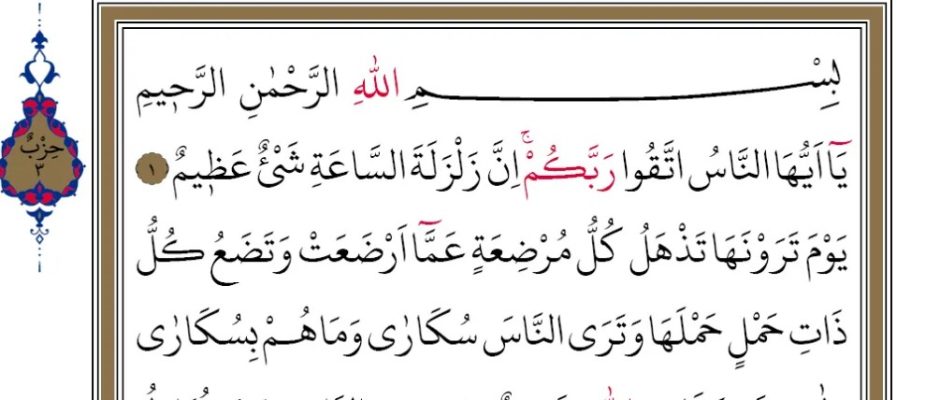 بِسْمِ اللّٰهِ الرَّحْمٰنِ الرَّح۪يمِ
يَٓا اَيُّهَا النَّاسُ اتَّقُوا رَبَّكُمْۚ اِنَّ زَلْزَلَةَ السَّاعَةِ شَيْءٌ عَظ۪يمٌ ١
يَوْمَ تَرَوْنَهَا تَذْهَلُ كُلُّ مُرْضِعَةٍ عَمَّٓا اَرْضَعَتْ وَتَضَعُ كُلُّ
ذَاتِ حَمْلٍ حَمْلَهَا وَتَرَى النَّاسَ سُكَارٰى وَمَا هُمْ بِسُكَارٰى
حِزْبٌ
٣